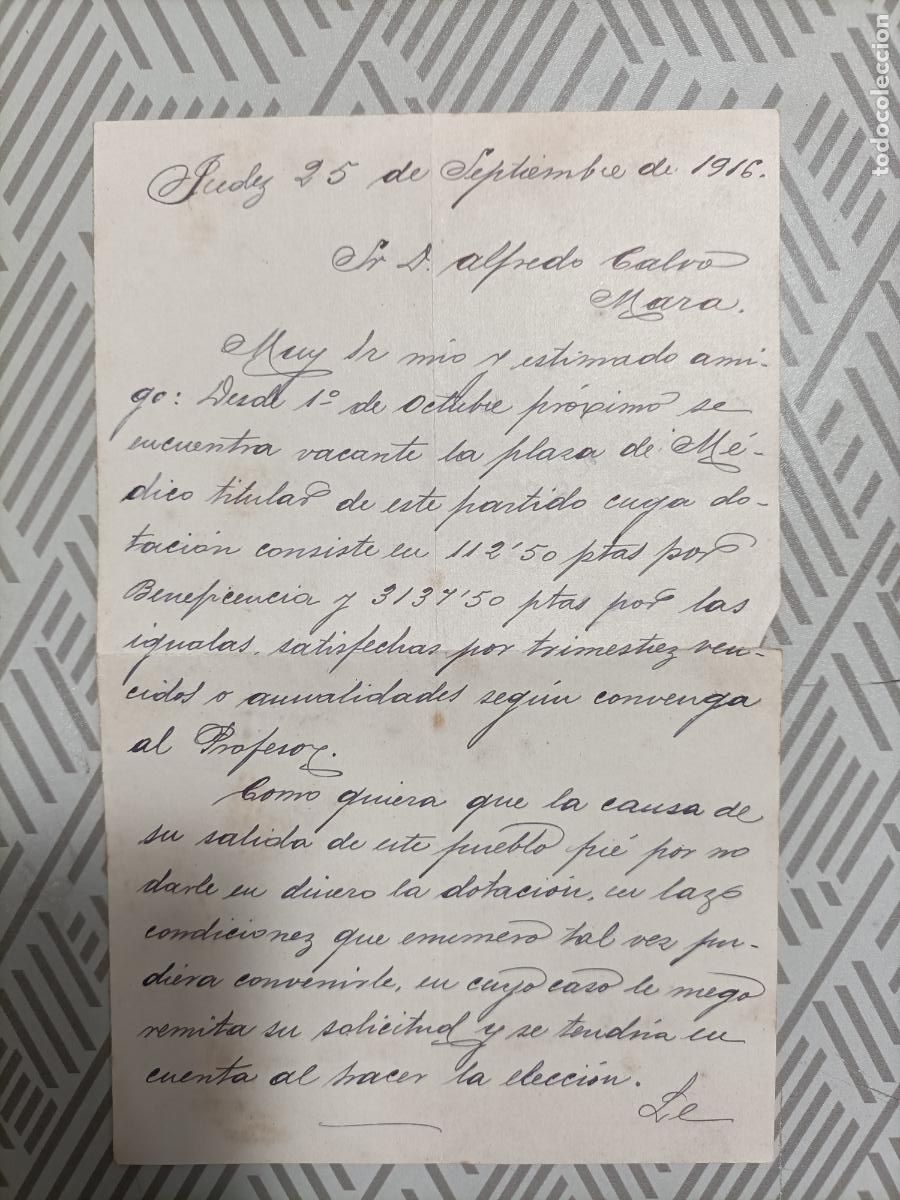 Judez 25 de Septiembre de 1916.
Sr D. Alfredo Calvo
Mara.
Muy Sr mio y estimado ami-
go: Desde 1º de Octubre próximo se
encuentra vacante la plaza de Mé-
dico titular de este partido cuya do-
tación consiste en 112'50 ptas por
Beneficencia y 3137'50 ptas por las
igualas, satisfechas por trimestrez ven-
cidos o anualidades según convenga
al Profesor.
Como quiera que la causa de
su salida de este pueblo fué por no
darle en dinero la dotación, en laz
condicionez que enumero tal vez pu-
diera convenirle, en cuyo caso le ruego
remita su solicitud y se tendria en
cuenta al hacer la elección.
Le
todocoleccion